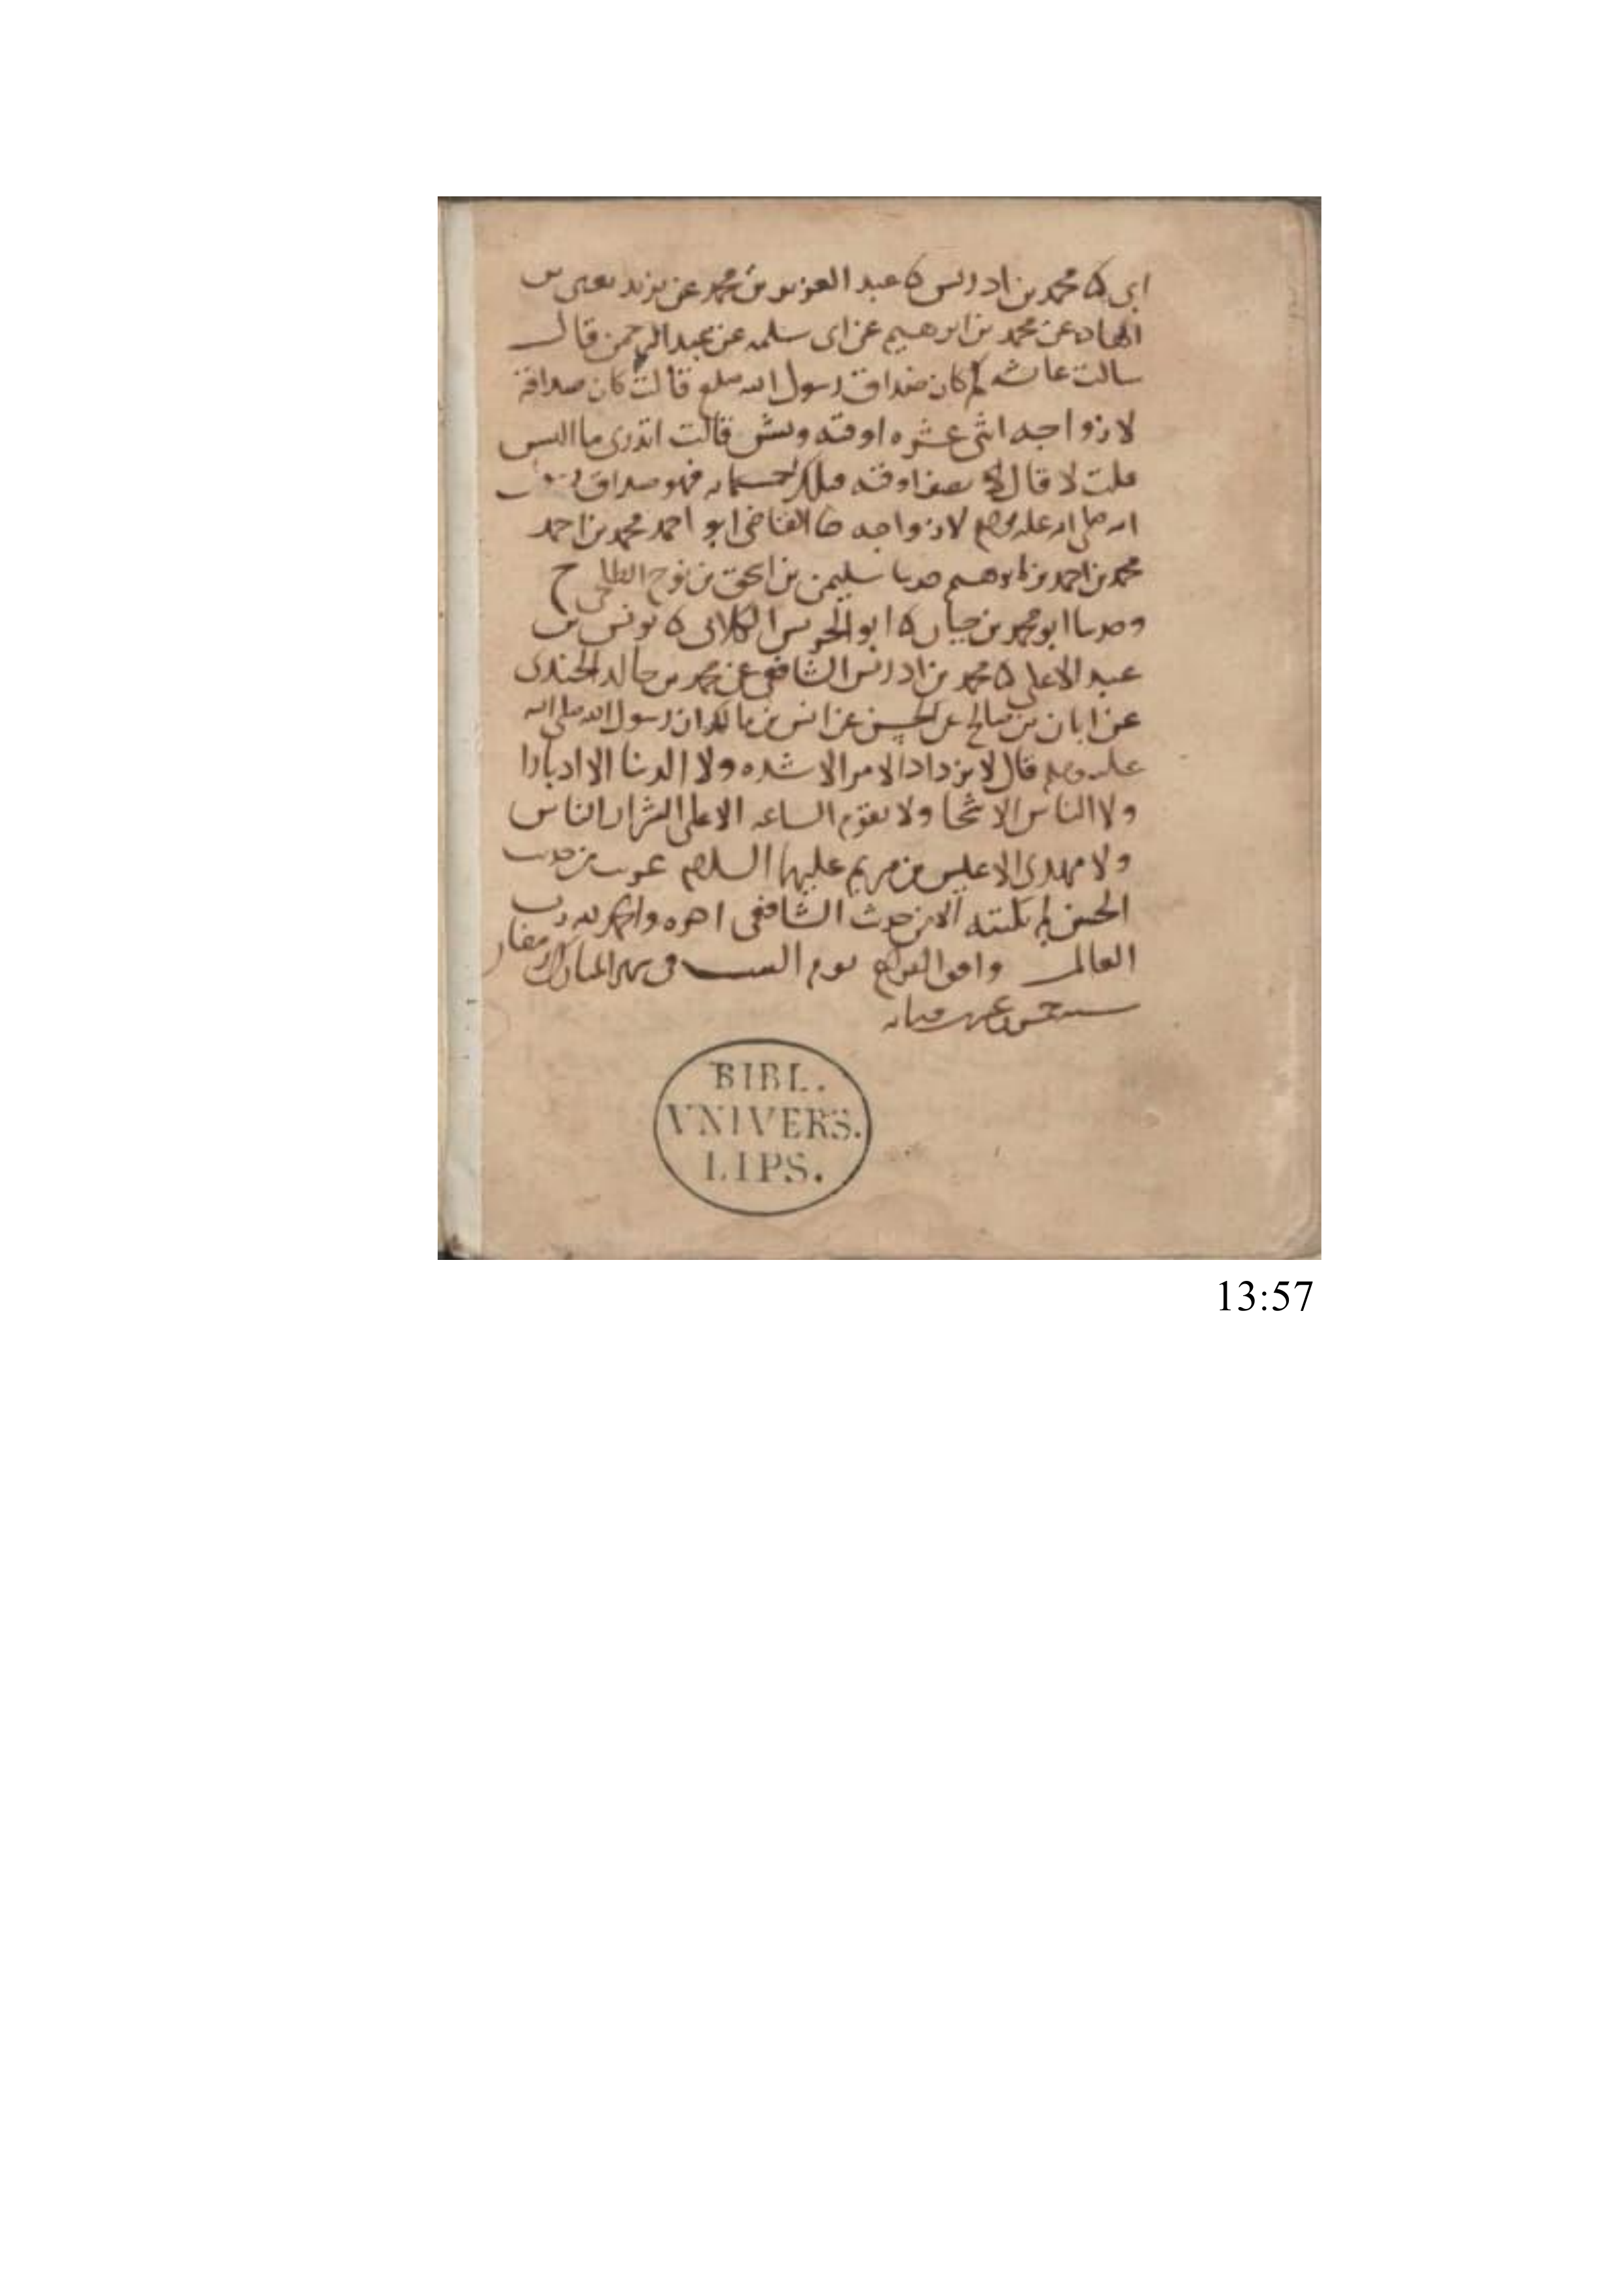 ابى ثنا محمد بن ادريس ثنا عبد العزيز بن محمد عن يزيد يعنى بن
الهاد عن محمد بن ابرهيم عن ابى سلمه عن عبد الرحمن قال
سالت عائشه كم كان صداق رسول الله صلعم قالت كان صداقة
لازواجه اثنى عشره اوقيه ونش قالت اتدرى ما النش
قلت لا قال نصف اوقيه فتلك خمسمايه فهو صداق رسول
الله صلى الله عليه وسلم لازواجه القاضى ابو احمد محمد بن احمد
محمد بن احمد بن ابرهيم حدثنا سليمن بن اسحق بن نوح الطلحى ح
وحدثنا ابو محمد بن حيان ثنا ابو الحريش الكلابى ثنا يونس بن
عبد الاعلى ثنا محمد بن ادريس الشافعى عن محمد بن خالد الجندى
عن ابان بن صالح عن الحسن عن انس بن مالك ان رسول الله صلى الله
عليه وسلم قال لا يزداد الامر الا شده ولا الدنيا الا ادبارا
ولا الناس الا شحا ولا تقوم الساعه الا على الشرار الناس
ولا مهدى الا عيسى بن مريم عليهما السلام غريب من حديث
الحسن لم نكتبه الا من حديث الشافعى اخره والحمد لله رب
العالمين وافق الفراغ يوم السبت فى شهر المبارك رمضان
سنه خمس وعشرين
BIBL.
VNIVERS.
LIPS.
13:57